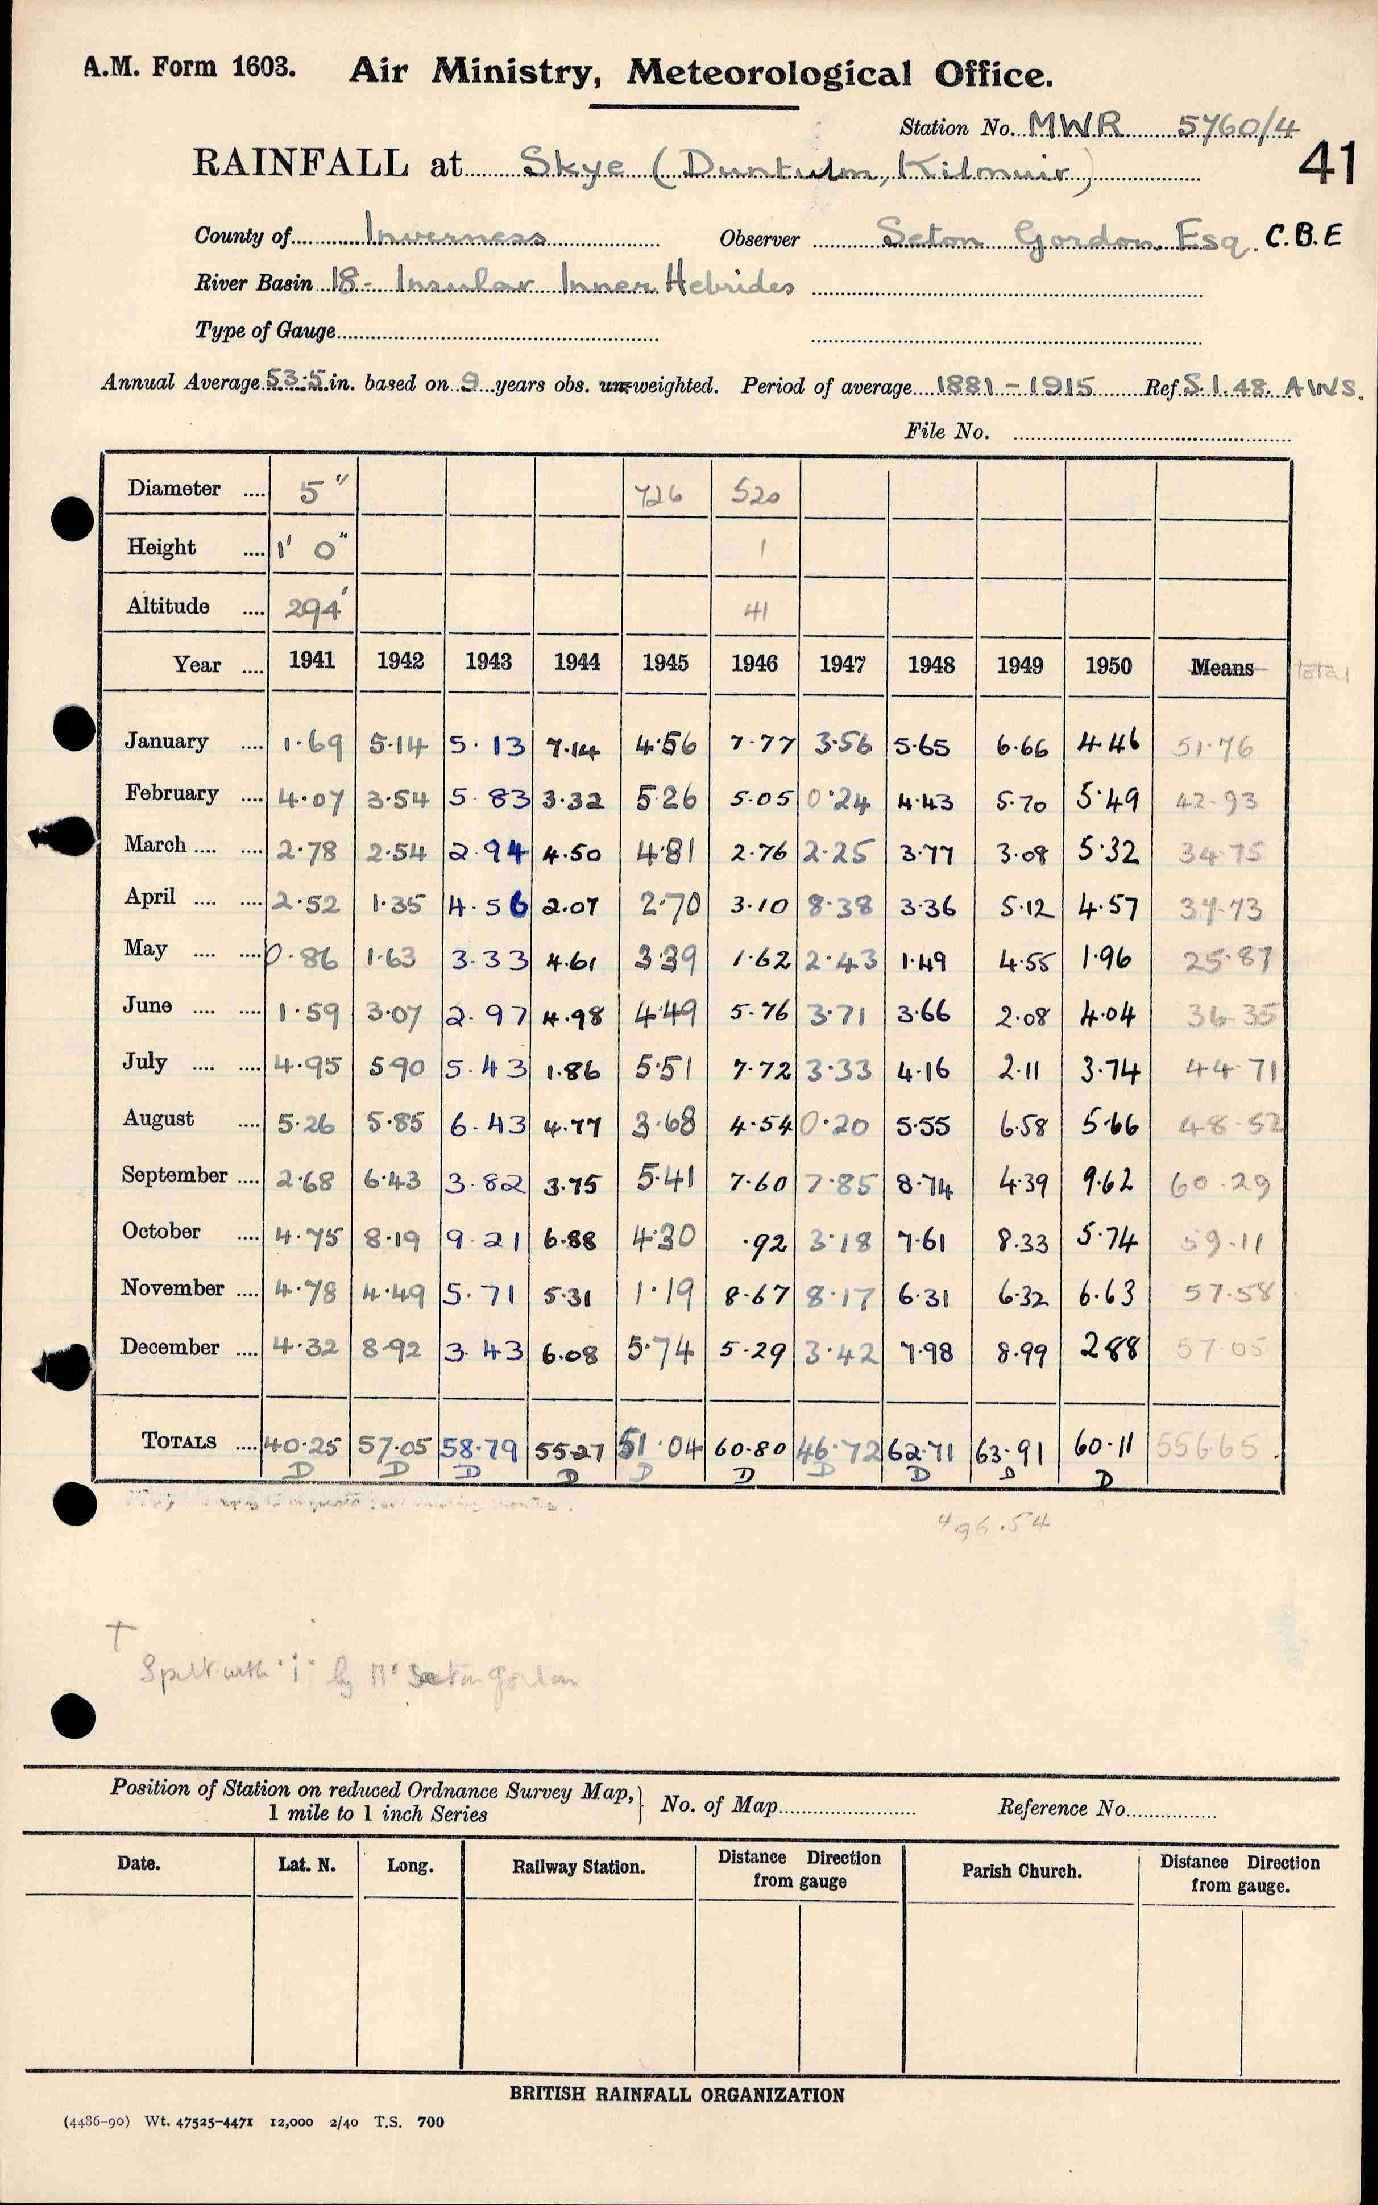 A.M. Form 1603. Air Ministry, Meteorological Office.
Station No. MWR 5760/4
RAINFALL at Skye (Duntulm, Kilmuir) 41
County of Inverness Observer Seton Gordon Esq. C.B.E
River Basin 18 - Insular Inner Hebrides
Type of Gauge
Annual Average 53.5 in. based on 9 years obs. weighted. Period of average 1881 - 1915 Ref S.1.48. AWS.
File No.
Diameter 5" 726 520
Height 1' 0" 1
Altitude 294' 41
Year 1941 1942 1943 1944 1945 1946 1947 1948 1949 1950 Means total
January 1.69 5.14 5.13 7.14 4.56 7.77 3.56 5.65 6.66 4.46 51.76
February 4.07 3.54 5.83 3.32 5.26 5.05 0.24 4.43 5.70 5.49 42.93
March 2.78 2.54 2.94 4.50 4.81 2.76 2.25 3.77 3.08 5.32 34.75
April 2.52 1.35 4.56 2.07 2.70 3.10 8.38 3.36 5.12 4.57 37.73
May 0.86 1.63 3.33 4.61 3.39 1.62 2.43 1.49 4.55 1.96 25.87
June 1.59 3.07 2.97 4.98 4.49 5.76 3.71 3.66 2.08 4.04 36.35
July 4.95 5.90 5.43 1.86 5.51 7.72 3.33 4.16 2.11 3.74 44.71
August 5.26 5.85 6.43 4.77 3.68 4.54 0.20 5.55 6.58 5.66 48.52
September 2.68 6.43 3.82 3.75 5.41 7.60 7.85 8.74 4.39 9.62 60.29
October 4.75 8.19 9.21 6.88 4.30 .92 3.18 7.61 8.33 5.74 59.11
November 4.78 4.49 5.71 5.31 1.19 8.67 8.17 6.31 6.32 6.63 57.58
December 4.32 8.92 3.43 6.08 5.74 5.29 3.42 7.98 8.99 2.88 57.05
TOTALS 40.25 57.05 58.79 55.27 51.04 60.80 46.72 62.71 63.91 60.11 556.65
D D D D D D D D D D
496.54
†
Spelt with "i" by Mr Seton Gordon
Position of Station on reduced Ordnance Survey Map, 1 mile to 1 inch Series } No. of Map Reference No.
Date. Lat. N. Long. Railway Station. Distance Direction from gauge Parish Church. Distance Direction from gauge.
BRITISH RAINFALL ORGANIZATION
(4486-90) Wt. 47525-4471 12,000 2/40 T.S. 700